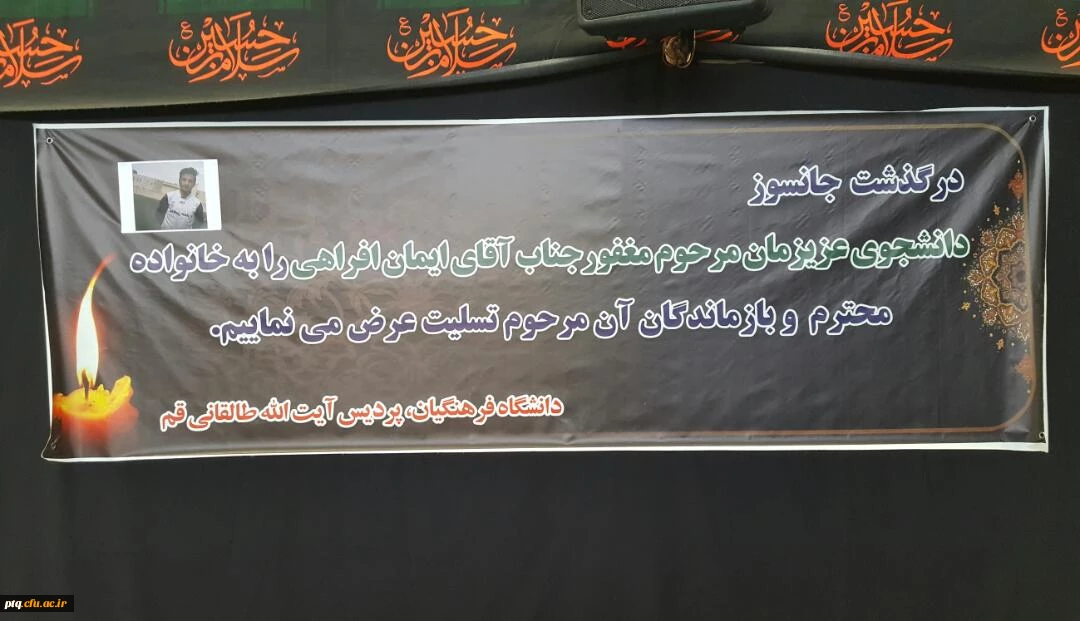 سلام بر حسین ع
سلام بر حسین ع
سلام بر حسین ع
درگذشت جانسوز
دانشجوی عزیزمان مرحوم مغفور جناب آقای ایمان افراهی را به خانواده
محترم و بازماندگان آن مرحوم تسلیت عرض می نماییم.
دانشگاه فرهنگیان، پردیس آیت الله طالقانی قم
ptq.cfu.ac.ir